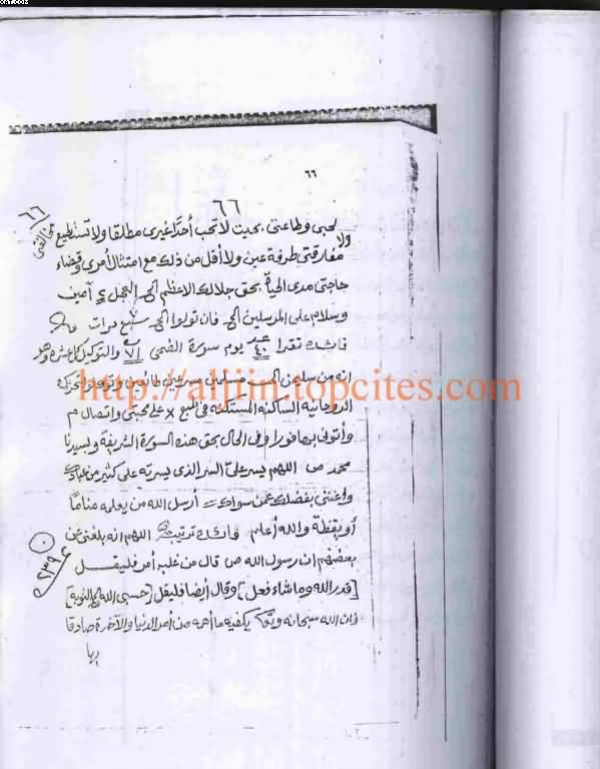 ٦٦
٦٦
لحبى وطاعتى بحيث لا تحب أحدًا غيرى مطلقا ولا تستطيع
مفارقتى طرفة عين ولا أقل من ذلك مع امتثال أمرى وقضاء
حاجتى مدى الحياة بحق جلالك الاعظم الخ العجل آمين
وسلام على المرسلين الخ فان تولوا الخ سبع مرات
فائدة تقرا ٤٠ يوم سورة الضحى ٧١ والتوكيل كل عشرة وهو
انه من سليمن مسلمين طائعين
الروحانية الساكنة المستكنة فى على محبتى واتصال
وأتونى بها فورا وفى الحال بحق هذه السورة الشريفة وبسيدنا
محمد ص اللهم يسر علىّ السر الذى يسرته على كثير من عبادك
واغننى بفضلك عمن سواك أرسل الله من يعلمه مناما
أو يقظة والله أعلم فائدة اللهم انه بلغنى عن
بعضهم ان رسول الله ص قال من غلبه أمر فليقل
[قدر الله وما شاء فعل] وقال أيضا فليقل [حسبى الله التوبة]
فان الله سبحانه يكفيه ما أهمه من أمر الدنيا والآخرة صادقا
http://aljjin.topcites.com